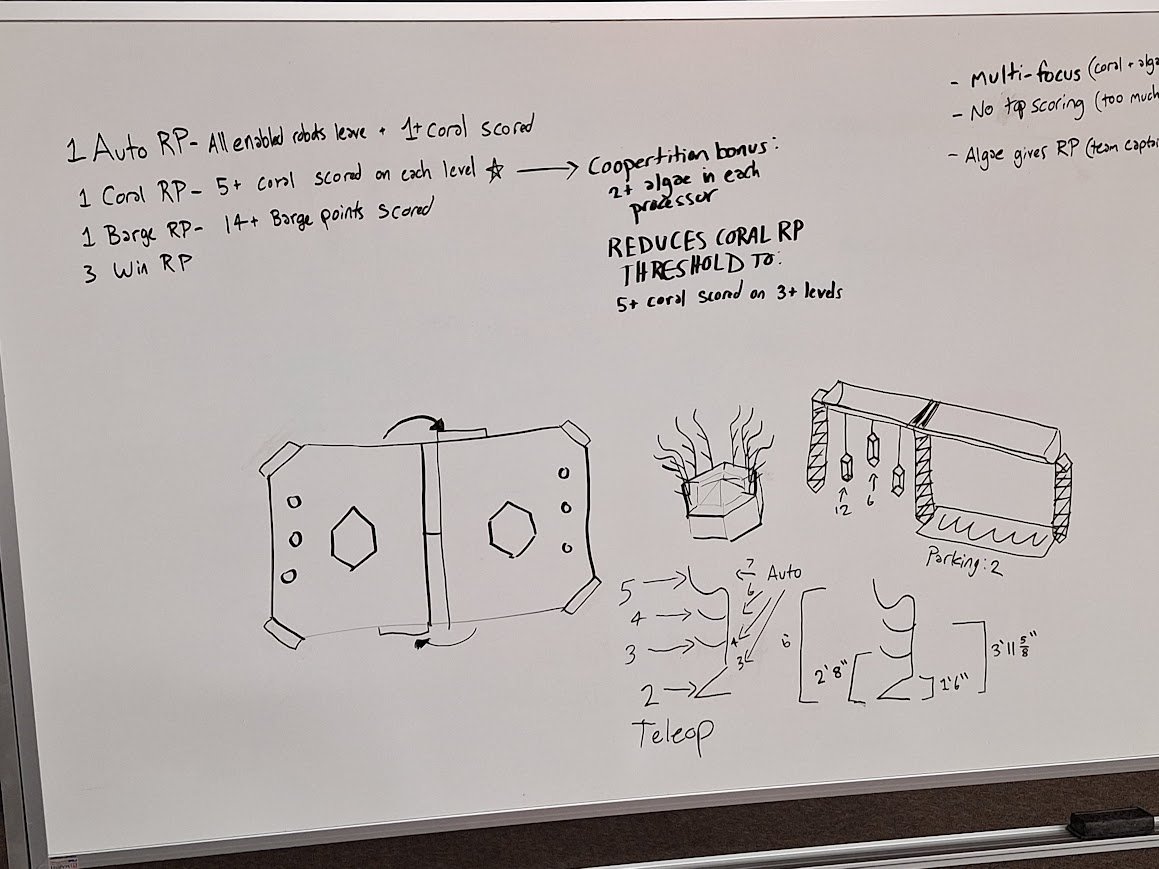 1 Auto RP- All enabled robots leave + 1+ coral scored
1 Coral RP- 5+ coral scored on each level ☆ →
1 Barge RP- 14+ Barge points scored
3 Win RP
Coopertition bonus:
2+ algae in each
processor
REDUCES CORAL RP
THRESHOLD TO:
5+ coral scored on 3+ levels
- Multi-focus (coral + alga
- No top scoring (too much
- Algae gives RP (team captai
12
6
Parking: 2
5 →
4 →
3 →
2 →
Teleop
7
6
4
3
Auto
6'
2'8"
1'6"
3'11 5/8"